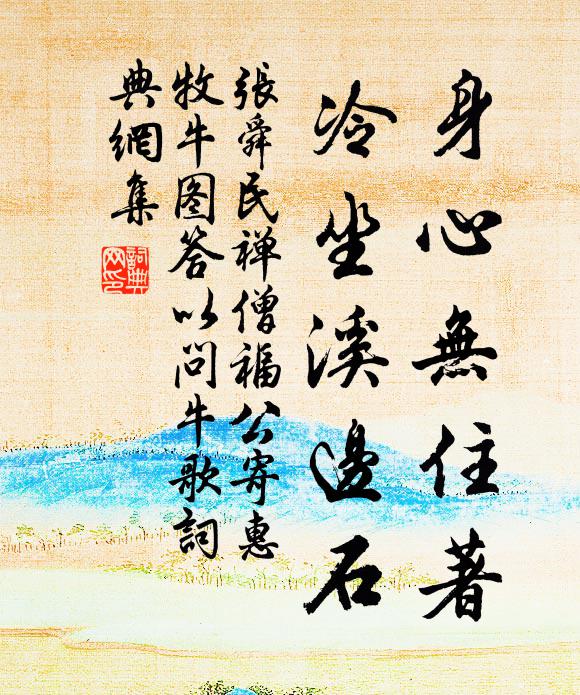 身心無住著
冷坐溪邊石
張舜民禅僧福公寄惠
牧牛图答以问牛歌詞
典網集
詞典网印